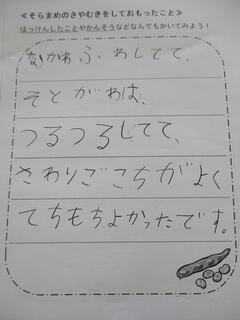 ≪そらまめのさやむきをしておもったこと≫
はっけんしたことやかんそうなどなんでもかいてみよう！
なかわふわしてて、
そとがわは、
つるつるしてて、
さわりごこちがよく
てちもちよかったです。